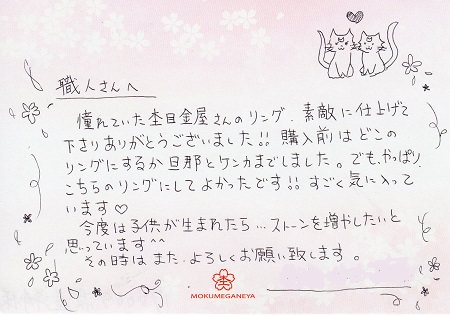 職人さんへ
憧れていた杢目金屋さんのリング、素敵に仕上げて
下さりありがとうございました!!購入前はどこの
リングにするか旦那とケンカまでしました。でも、やっぱり
こちらのリングにしてよかったです!!すごく気に入って
います♡
今度は子供が生まれたら…ストーンを増やしたいと
思っています^^
その時はまた、よろしくお願い致します。
杢
MOKUMEGANEYA